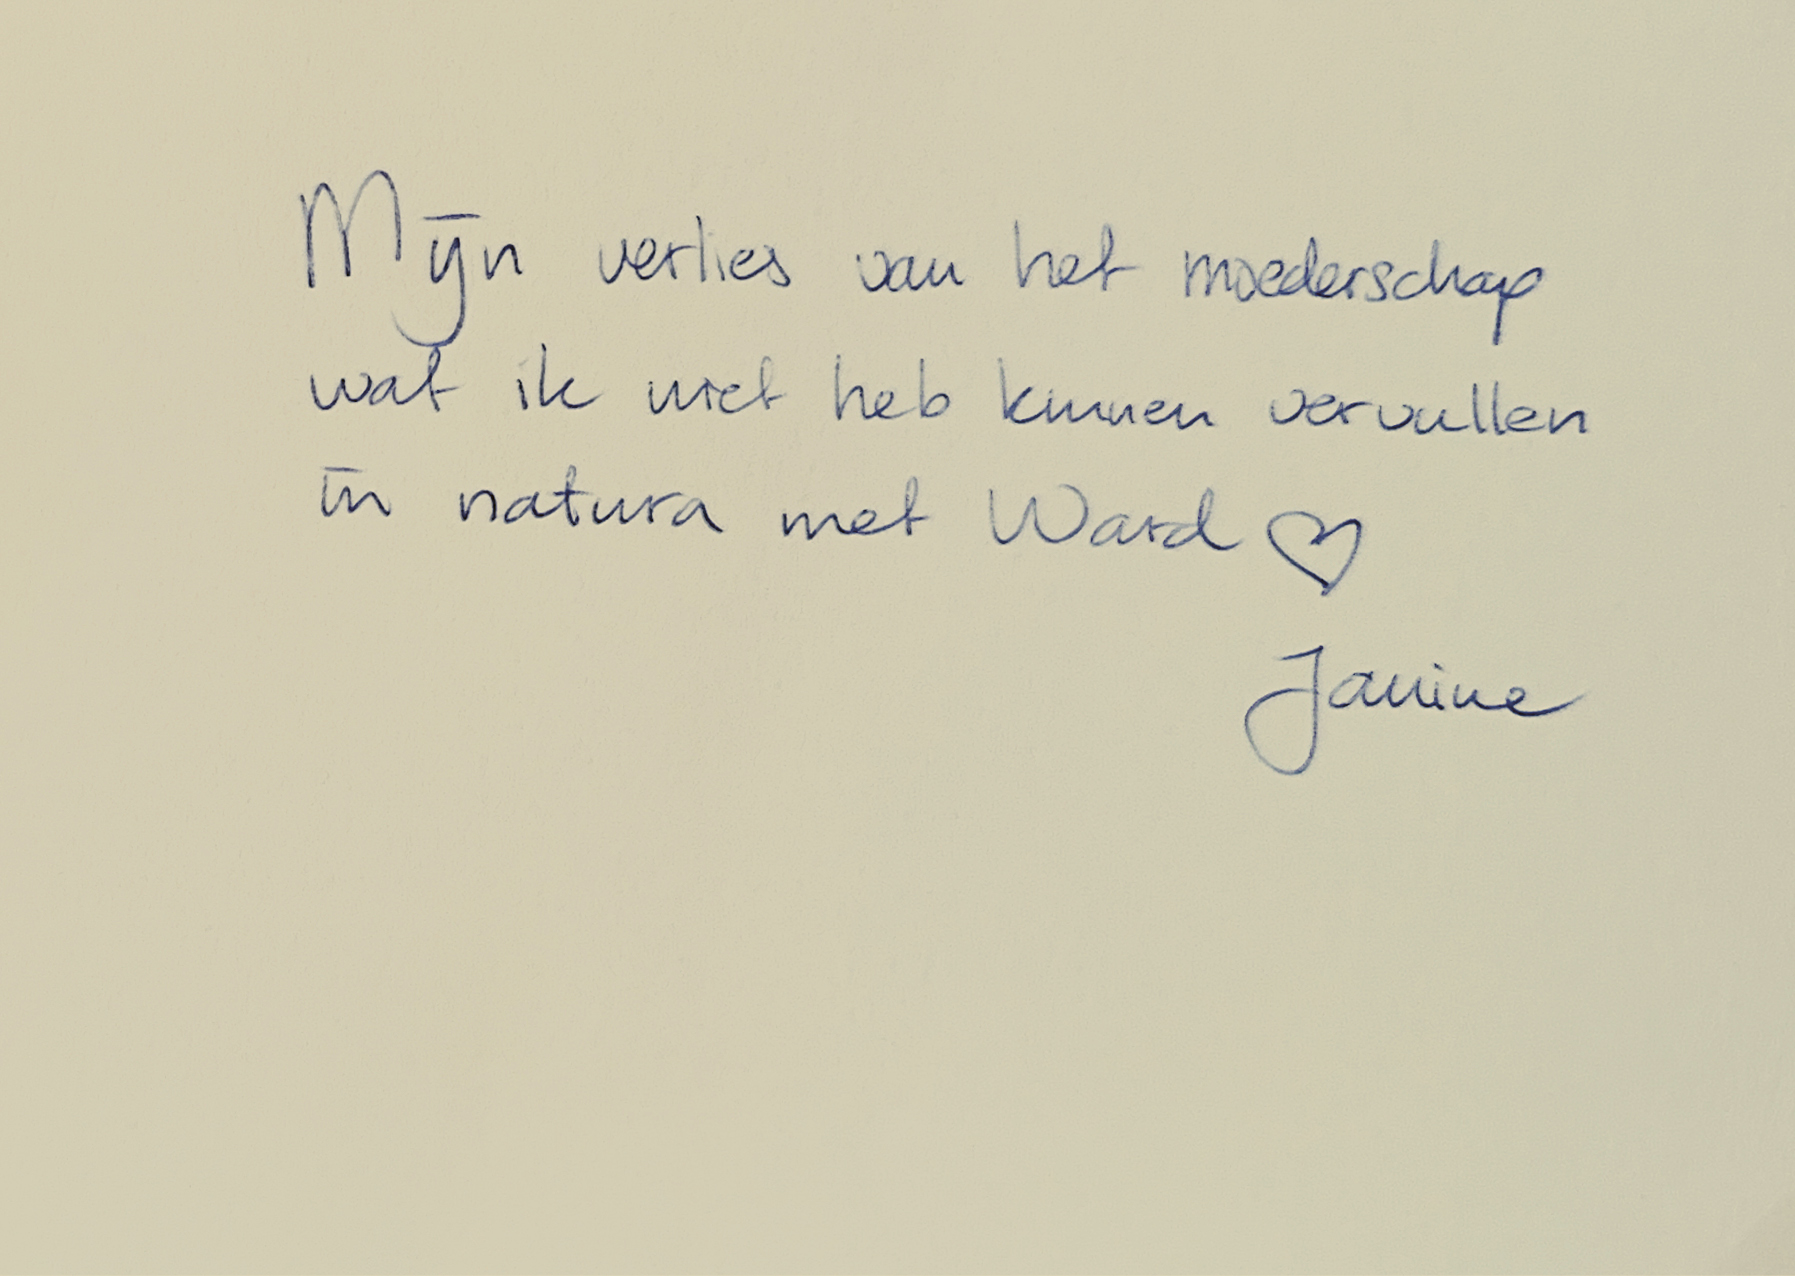 Mijn verlies van het moederschap
wat ik niet heb kunnen vervullen
in natura met Ward ♡
Janine